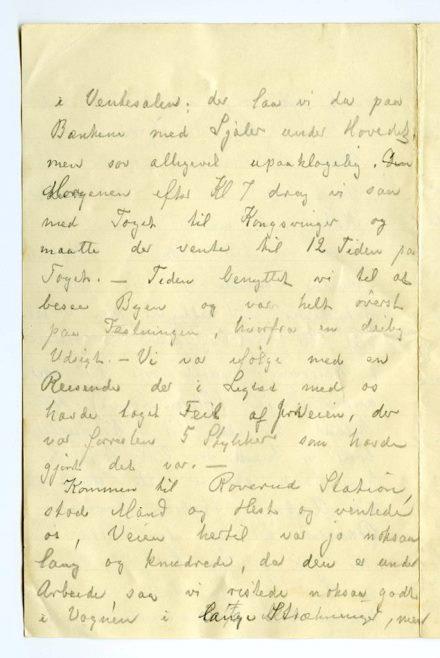 i Ventesalen; der laa vi da paa
Bænkene med Sjaler under Hovedet,
men sov alligevel upaaklagelig. Om
Morgenen efter Kl 7 drog vi saa
med Toget til Kongsvinger og
maatte der vente til 12 Tiden paa
Toget. — Tiden benyttet vi til at
besee Byen og var helt øverst
paa Fæstningen, hvorfra en deilig
Udsigt. — Vi var ifølge med en
Reisende der i Ligud med os
havde taget Feil af JernVeien, der
var forresten 5 Stykker som havde
gjort det var. —
Kommen til Roverud Station,
stod Mand og Hest og ventede
os, Veien hertil var jo noksaa
lang og kneedrede, da den er under
Arbeide saa vi ristede noksaa godt
i Vognen i lange Strækninger, men